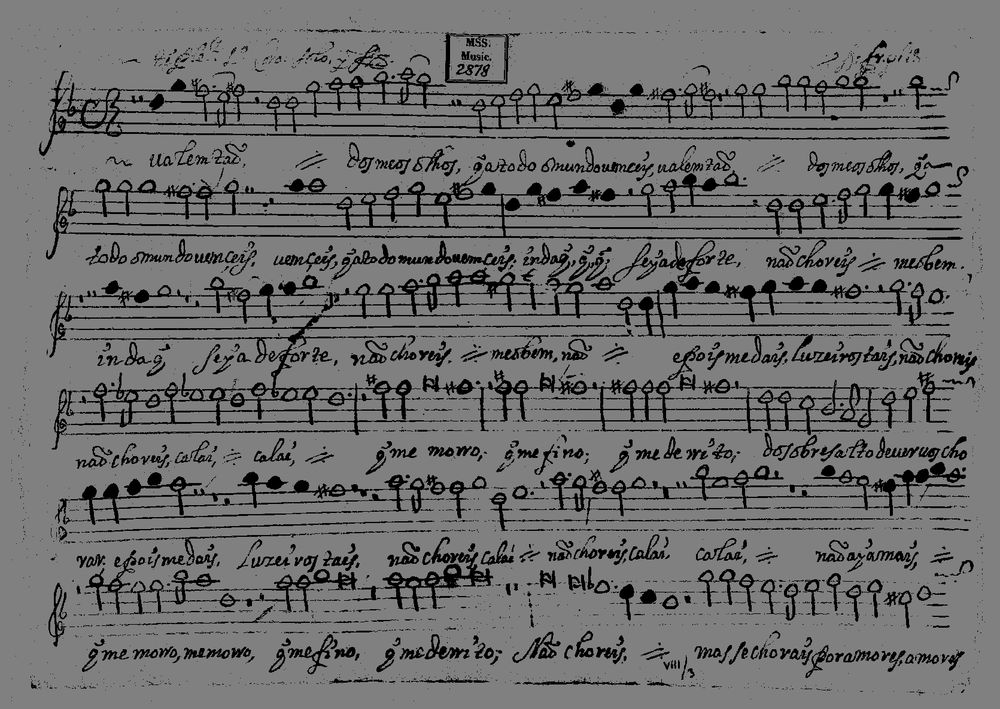 MSS.
Music.
2878
valem taõ, dos meos olhos, q̃ a todo o mundo venceis, valem taõ dos meos olhos, q̃ a
todo o mundo venceis, venceis, q̃ a todo o mundo vemceis. inda q̃, q̃, q̃, seya de forte, naõ choreis meo bem.
inda q̃ seya de forte, naõ choreis. meo bem, naõ e pois me dais, luzeiros tais, naõ choreis
naõ choreis, calai, calai, q̃ me morro, q̃ me fino; q̃ me derrito; do sobresalto de vervos cho
rar. e pois me dais, luzeiros tais, naõ choreis, calai naõ choreis, calai, calai, naõ aya mais,
q̃ me morro, me morro, q̃ me fino, q̃ me derrito; Naõ choreis, mas se chorais por amores, amores
viii/3